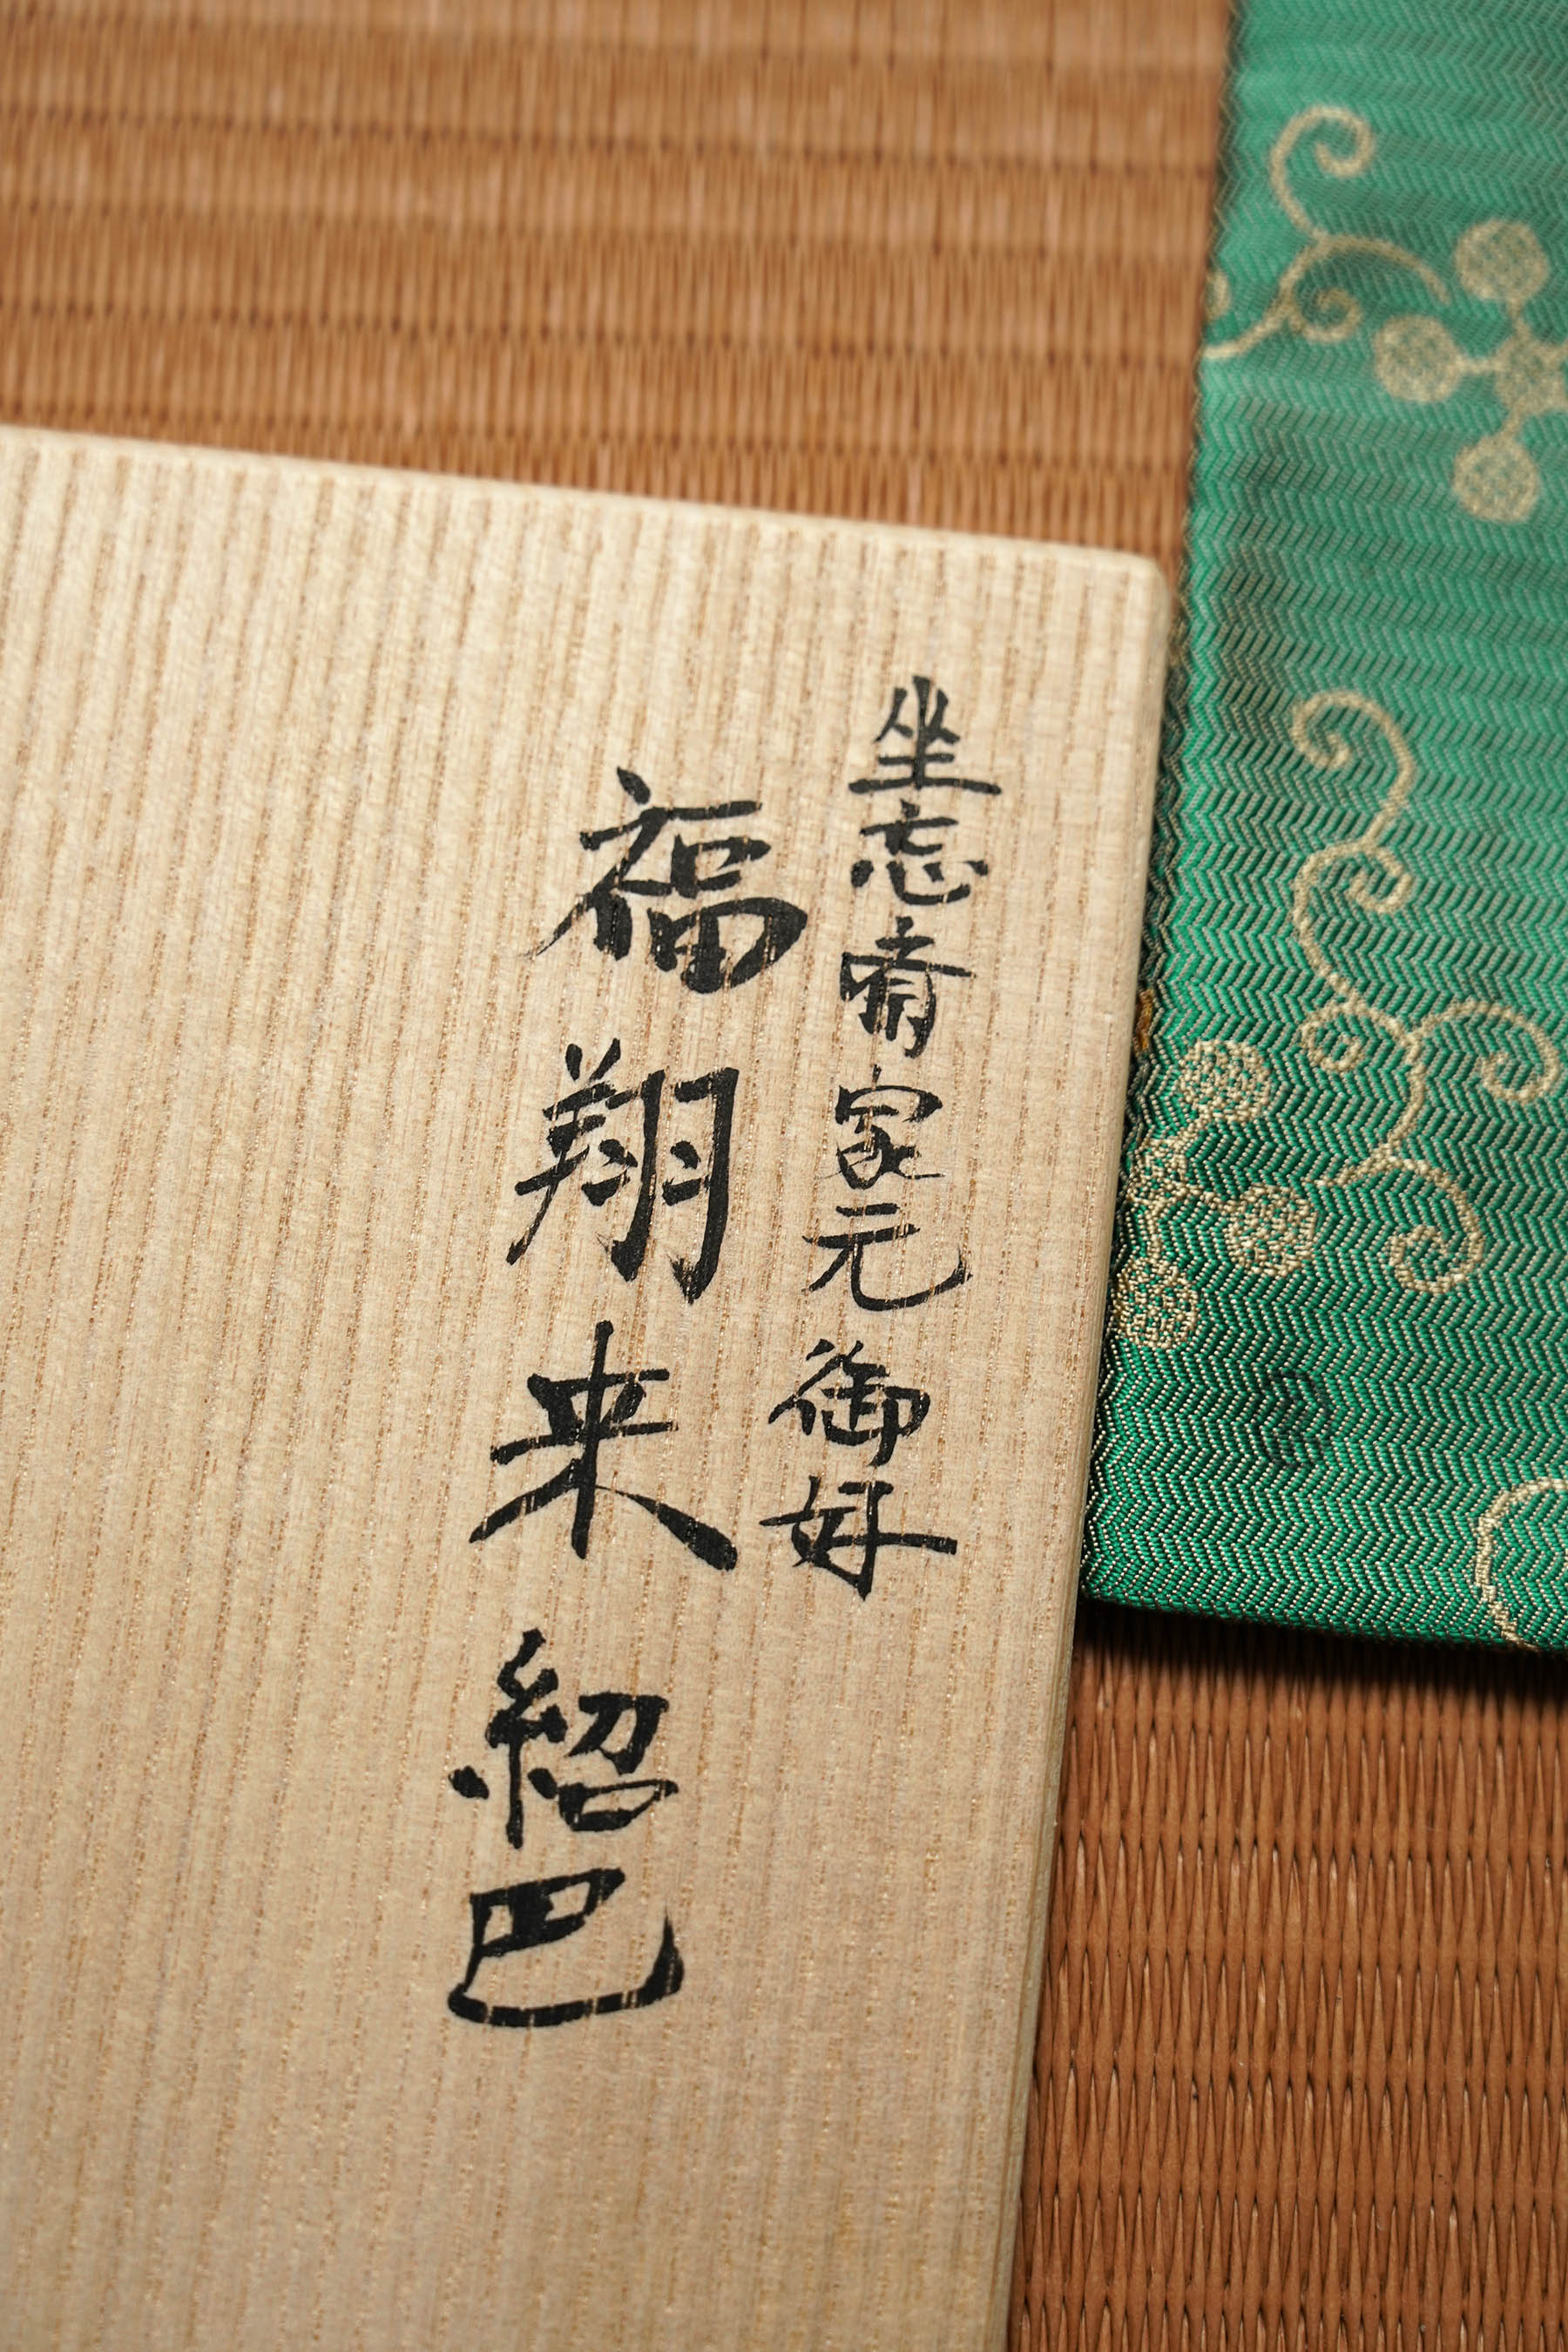 坐忘斎家元御好
福翔来紹巴